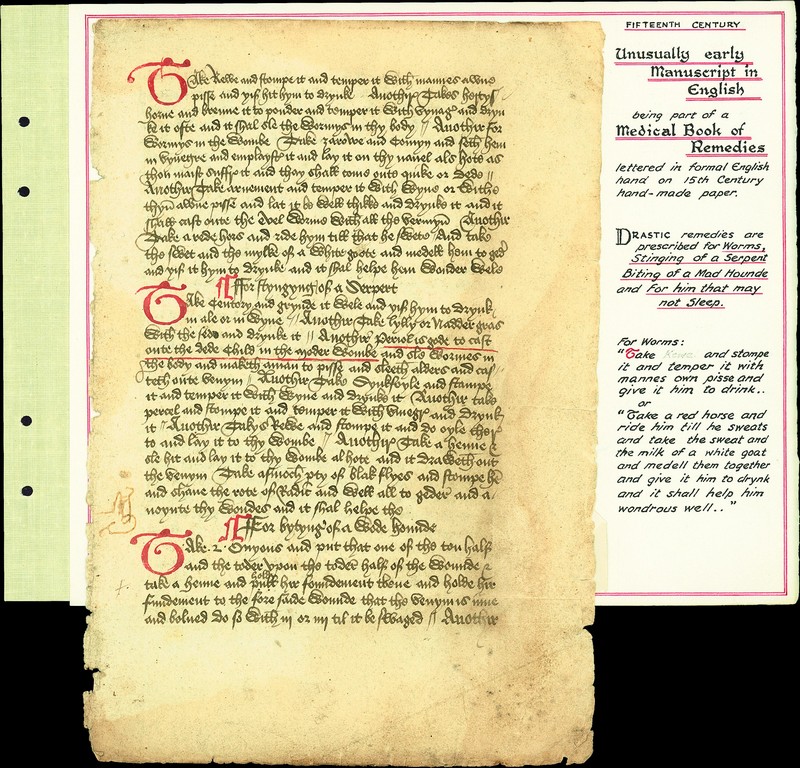 Take Rewe and stompe it and temper it with mannes awne
pisse and yif hit hym to drynk Another Takes hertys
horne and brenne it to pouder and temper it with Vynagr and dryn
ke it ofte and it shal sle the wormys in thy body // Another For
wormys in the wombe Take and Comyn and seth hem
in vynegre and emplaystr it and lay it on thy nauel als hote as
thou maist suffre it and thay shall come oute quike or dede //
Another Take arnement and temper it with wyne or withe
thyn awne pisse and lat it be well thikke and drynke it and it
shall cast oute the Wormes with all the vermyn Another
Take a rede hors and ride hym till that he swete And take
the swet and the mylke of a white goote and medell hem to ged
and yif it hym to drynke and it shal helpe hem wonder wele
For styngyng of a Serpent
Take Centory and grynde it wele and yif hym to drynk
in ale or in wyne // Another Take lylly or Madder gras
with the sede and drynke it // Another is gode to cast
oute the dede Child in the moder wombe and sle wormes in
the body and maketh aman to pisse and sleeth and cas
teth oute venym // Another Take and stampe
it and temper it with wyne and drynke it Another take
percel and stompe it and temper it with vinegr and drynk
it // Another Takys Rewe and stompe it and do oyle ther
to and lay it to thy wombe // Another Take a henne &
sle hit and lay it to thy wombe al hote and it draweth out
the venym Take pty of blak flyes and stompe he
and shaue the rote of Radic and well all to geder and a
noynte thy woundes and it shal helpe the
For bytyng of a wode hounde
Take .2. Onyons and put that one of the ton half
and the toder vpon the toder half of the wounde &
take a henne and pull hir foundement bare and holde hir
fundement to the fore saide wounde that the venym is inne
and bolned do so with iij or iiij til it be swaged // Another
FIFTEENTH CENTURY
Unusually early
Manuscript in
English
being part of a
Medical Book of
Remedies
lettered in formal English
hand on 15th Century
hand-made paper.
DRASTIC remedies are
prescribed for Worms,
Stinging of a Serpent
Biting of a Mad Hounde
and For him that may
not Sleep.
For Worms:
"Take Rewe and stompe
it and temper it with
mannes own pisse and
give it him to drink..
or
"Take a red horse and
ride him till he sweats
and take the sweat and
the milk of a white goat
and medell them together
and give it him to drynk
and it shall help him
wondrous well.."